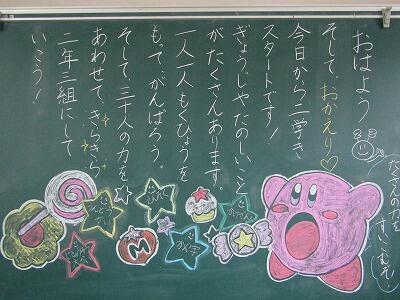 おはよう
そして、おかえり♡
今日から二学き
スタートです！
ぎょうじやたのしいこと
がたくさんあります。
一人一人もくひょうを
もってがんばろう。
そして、三十人の力を
あわせて、きらきら
二年三組にして
いこう！
たくさんの力を
すいこむぞ！
M